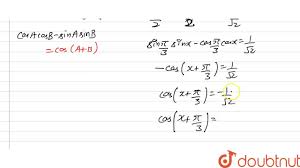 cosAcosB-sinAsinB
= cos(A+B)
2 2 √2
sin π/3 sinx - cos π/3 cosx = 1/√2
-cos(x+π/3) = 1/√2
cos(x+π/3) = -1/√2
cos(x+π/3) =
doubtnut